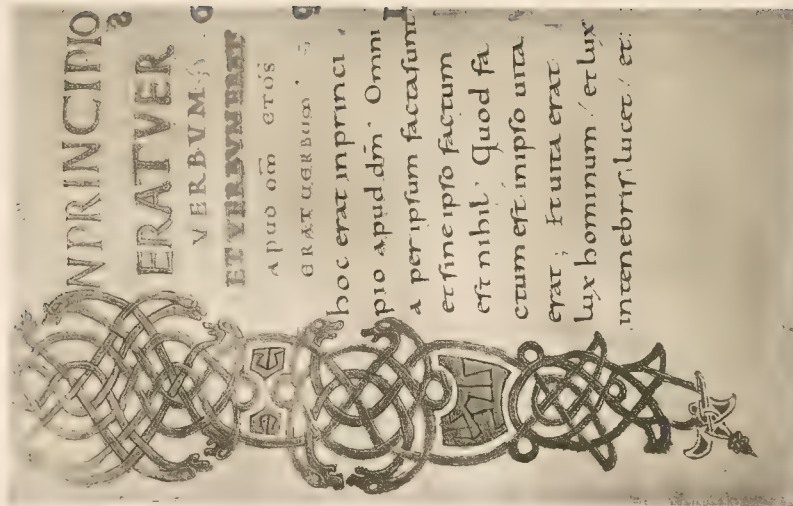 NPRINCIPIO
ERATVER
VERBVM
ETVERBVMERAT
apud dm̄ etd̄s
eratuerbum·
hoc erat inprinci
pio apud dm̄· Omni
a peripsum factasunt
etsine ipso factum
est nihil· Quod fa
ctum est inipso uita
erat; Etuita erat
lux hominum· et lux
intenebris lucet· et